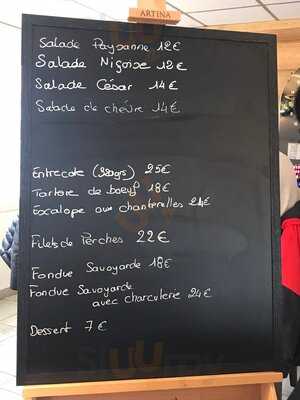 ARTINA
Salade Paysanne 12€
Salade Niçoise 12€
Salade César 14€
Salade de chèvre 14€
Entrecote 25€
Tartare de boeuf 18€
Escalope aux chanterelles 24€
Filets de Perches 22€
Fondue Savoyarde 18€
Fondue Savoyarde
avec charcuterie 24€
Dessert 7€